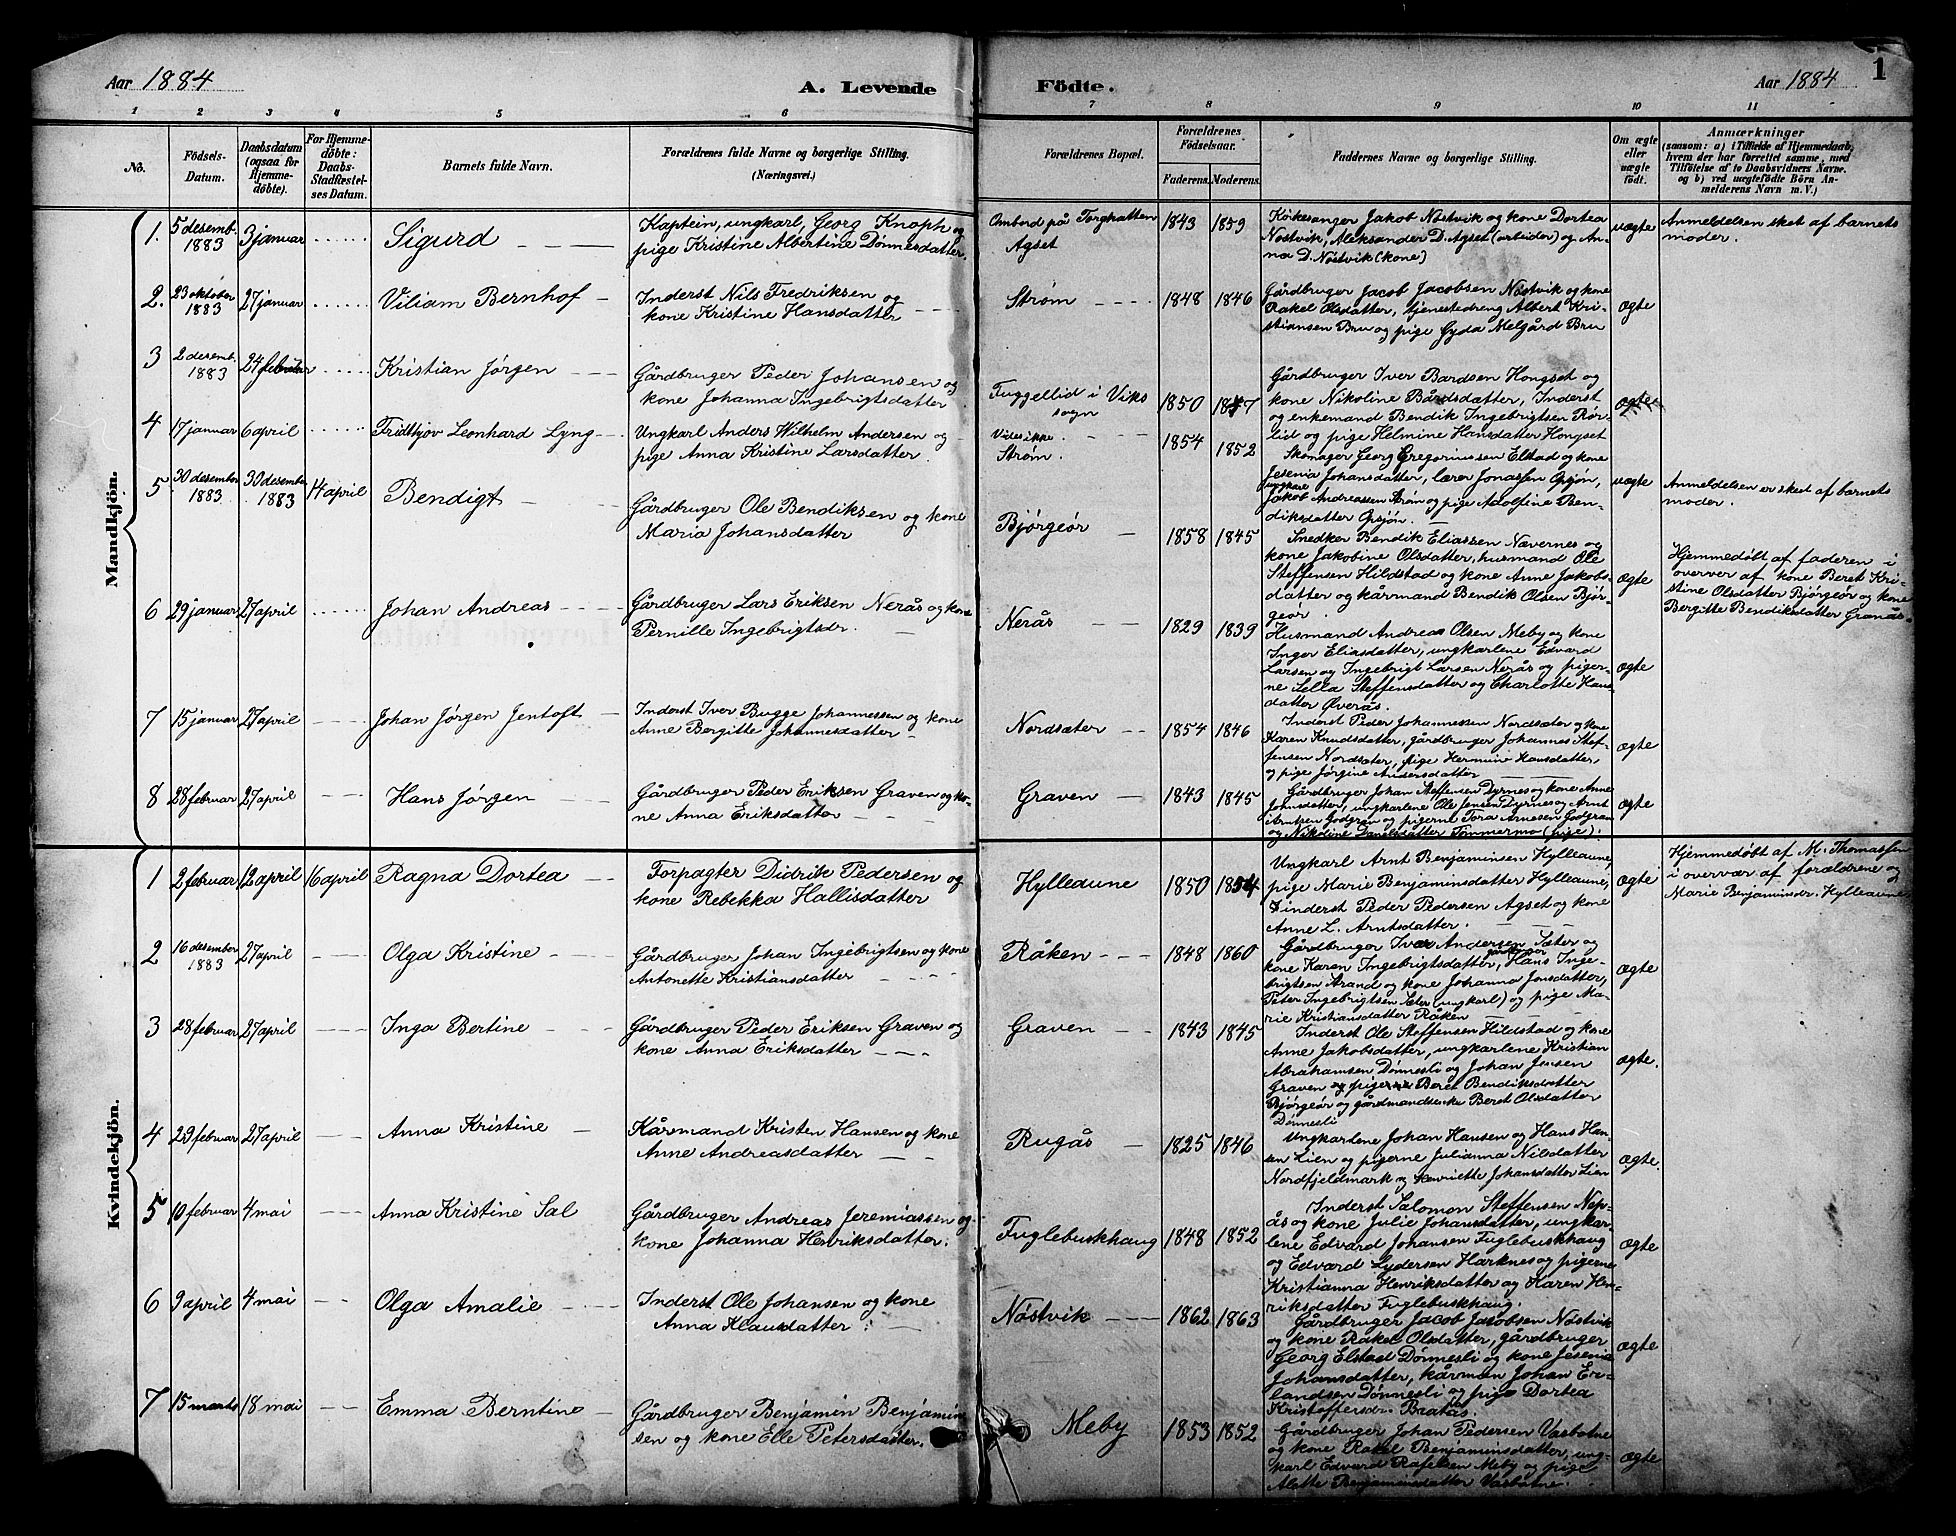 Aar 1884
A. Levende Födte.
Aar 1884
1
1 2 3 4 5 6 7 8 9 10 11
No.
Födsels-Datum.
Daabsdatum (ogsaa for Hjemme-döbte).
For Hjemme-döbte: Daabs-Stadfæstel-ses Datum.
Barnets fulde Navn.
Forældrenes fulde Navne og borgerlige Stilling.
(Næringsvei.)
Forældrenes Bopæl.
Forældrenes Födselsaar.
Faderens. Moderens.
Faddernes Navne og borgerlige Stilling.
Om ægte eller uægte födt.
Anmærkninger
(saasom: a) i Tilfælde af Hjemmedaab, hvem der har forrettet samme, med Tilföielse af to Daabsvidners Navne. og b) ved uægtefödte Börn An-melderens Navn m. V.)
Mandkjön.
1. 5 desemb. 1883 3 januar Sigurd
Kaptein, ungkarl, Georg Knoph og
pige Kristine Albertine Dønnesdatter.
Ombord på Torghatten
Agset
1843 1859
Kökesanger Jakob Nøstvik og kone Dortea
Nøstvik, Aleksander D. Agset (arbeider) og An-
na D. Nøstvik (kone)
uægte
Anmeldelsen sket af barnets
moder.
2. 23 oktober 1883 27 januar Viliam Bernhof
Inderst Nils Fredriksen og
kone Kristine Hansdatter
Strøm
1848 1846
Gårdbruger Jacob Jacobsen Nøstvik og kone
Rakel Olsdatter, tjenestedreng Albert Kri-
stiansen Bru og pige Gyda Melgård Bru
ægte
3 2 desemb. 1883 24 februar Kristian Jørgen
Gårdbruger Peder Johansen og
kone Johanna Ingebrigtsdatter
Fuggellid i Viks
sogn
1850 1847
Gårdbruger Iver Bardsen Hongset og
kone Nikoline Bårdsdatter, Inderst
og enkemand Bendik Ingebrigtsen Rør-
lid og pige Helmine Hansdatter Hongset
ægte
4 17 januar 6 april Fridthjov Leonhard Lyng
Ungkarl Anders Wilhelm Andersen og
pige Anna Kristine Larsdatter.
Vides ikke
Strøm.
1854 1852
Skomager Georg Gregoriussen Elstad og kone
Jesenia Johansdatter, lærer Jonassen Opsjøn,
ungkarl
Jakob Andreassen Strøm og pige Adolfine Ben-
diksdatter Opsjøn.
uægte
Anmeldelsen er sket af barnets
moder.
5 30 desember 1883 30 desember 1883 14 april Bendigt
Gårdbruger Ole Bendiksen og kone
Maria Johansdatter
Bjørgeør
1858 1845
Snedker Bendik Eliassen Nævernes og
kone Jakobine Olsdatter, husmand Ole
Steffensen Hildstad og kone Anne Jakobs-
datter og kårmand Bendik Olsen Bjør-
geør.
ægte
Hjemmedøbt af faderen i
overver af kone Beret Kri-
stine Olsdatter Bjørgeør og kone
Bergitte Bendiksdatter Granås.
6 29 januar 27 april Johan Andreas
Gårdbruger Lars Eriksen Nerås og kone
Pernille Ingebrigtsdr.
Nerås
1829 1839
Husmand Andreas Olsen Meby og kone
Inger Eliasdatter, ungkarlene Edvard
Larsen og Ingebrigt Larsen Nerås og piger-
ne Sella Steffensdatter og Charlotte Hans-
datter Øverås.
ægte
7 15 januar 27 april Johan Jørgen Jentoft
Inderst Iver Bugge Johannessen og kone
Anne Bergitte Johannesdatter
Nordsæter
1854 1846
Inderst Peder Johannessen Nordsæter og kone
Karen Knudsdatter, gårdbruger Johannes Stef-
fensen Nordsæter, pige Hermine Hansdatter
og pige Jørgine Andersdatter
ægte
8 28 februar 27 april Hans Jørgen
Gårdbruger Peder Eriksen Graven og ko-
ne Anna Eriksdatter
Graven
1843 1845
Gårdbruger Johan Steffensen Dyrnes og kone Anne
Johnsdatter, ungkarlene Ole Jensen Dyrnes og Arnt
Arntsen Godgran og pigerne Tora Arnesen Godgran
og Nikoline Danielsdatter Tømmermo (pige).
ægte
Kvindekjön.
1 2 februar 12 april 16 april Ragna Dortea
Forpagter Didrik Pedersen og
kone Rebekka Hallisdatter
Hylleaune
1850 1854
Ungkarl Arnt Benjaminsen Hylleaune,
pige Marie Benjaminsdatter Hylleaune,
inderst Peder Pedersen Agset og kone
Anne L. Arntsdatter.
ægte
Hjemmedøbt af M. Thomassen
i overvær af forældrene og
Marie Benjaminsdr. Hylleaune
2 16 desember 1883 27 april Olga Kristine
Gårdbruger Johan Ingebrigtsen og kone
Antonette Kristiansdatter
Råken
1848 1860
Gårdbruger Iver Andersen Sæter og
kone Karen Ingebrigtsdatter, Hans Inge-
brigtsen Strand og kone Johanna Jonsdatter,
Peter Ingebrigtsen Sæter (ungkarl) og pige Ma-
rie Kristiansdatter Råken
ægte
3 28 februar 27 april Inga Bertine
Gårdbruger Peder Eriksen Graven og
kone Anna Eriksdatter
Graven
1843 1845
Inderst Ole Steffensen Hildstad og kone
Anne Jakobsdatter, ungkarlene Kristian
Abrahamsen Dønnesli og Johan Jensen
Graven og pigerne Beret Bendiksdatter
Bjørgeør og gårdmandsenke Beret Olsdatter
Dønnesli
ægte.
4 29 februar 27 april Anna Kristine
Kårmand Kristen Hansen og kone
Anne Andreasdatter
Rugås
1825 1846
Ungkarlene Johan Hansen og Hans Han-
sen Lien og pigerne Julianna Nilsdatter
Nordfjeldmark og Henriette Johansdatter Lien
ægte.
5 10 februar 4 mai Anna Kristine Sal
Gårdbruger Andreas Jeremiassen og
kone Johanna Henriksdatter.
Fuglebuskhaug
1848 1852
Inderst Salomon Steffensen Nep-
ås og kone Julie Johansdatter, ungkar-
lene Edvard Johansen Fuglebuskhaug
og Edvard Lydersen Harknes og pigerne
Kristianna Henriksdatter og Karen Hen-
riksdatter Fuglebuskhaug.
ægte
6 9 april 4 mai Olga Amalie
Inderst Ole Johansen og kone
Anna Klausdatter.
Nøstvik
1862 1863
Gårdbruger Jacob Jacobsen Nøstvik
og kone Rakel Olsdatter, gårdbruger
Georg Elstad Dønnesli og kone Jesenia
Johansdatter, kårman Johan Er-
landsen Dønnesli og pige Dortea
Kristoffersdr. Bratås.
ægte
7 15 marts 18 mai Emma Berntine
Gårdbruger Benjamin Benjamin
sen og kone Elle Petersdatter.
Meby
1853 1852
Gårdbruger Johan Pedersen Vasbotne
og kone Rakel Benjaminsdatter, ung-
karl Edvard Rafelsen Meby og pige
Alette Benjaminsdatter Vasbotne.
ægte